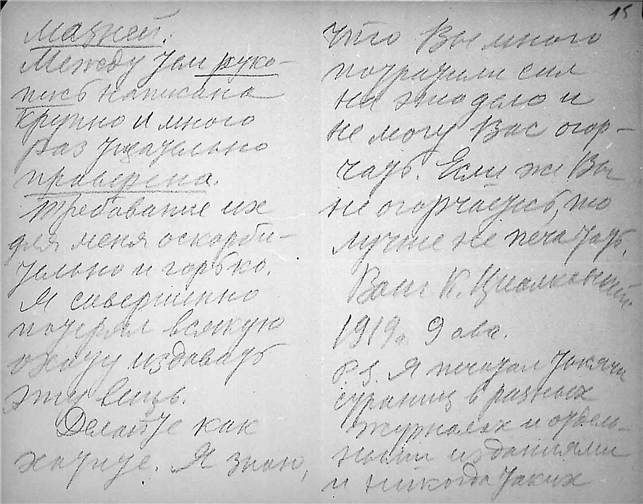 мазней.
Между тем руко-
пись написана
крупно и много
раз тщательно
проверена.
Требование их
для меня оскорби-
тельно и горько.
Я совершенно
потерял всякую
охоту издавать
эту вещь.
Делайте как
хотите. Я знаю,
15
что Вы много
потратили сил
на это дело и
не могу Вас огор-
чать. Если же Вы
не огорчаетесь, то
лучше не печатать.
Ваш К. Циолковский
1919 г. 9 авг.
P.S. Я печатал тысячи
страниц в разных
журналах и отдель-
ными изданиями
и никогда таких